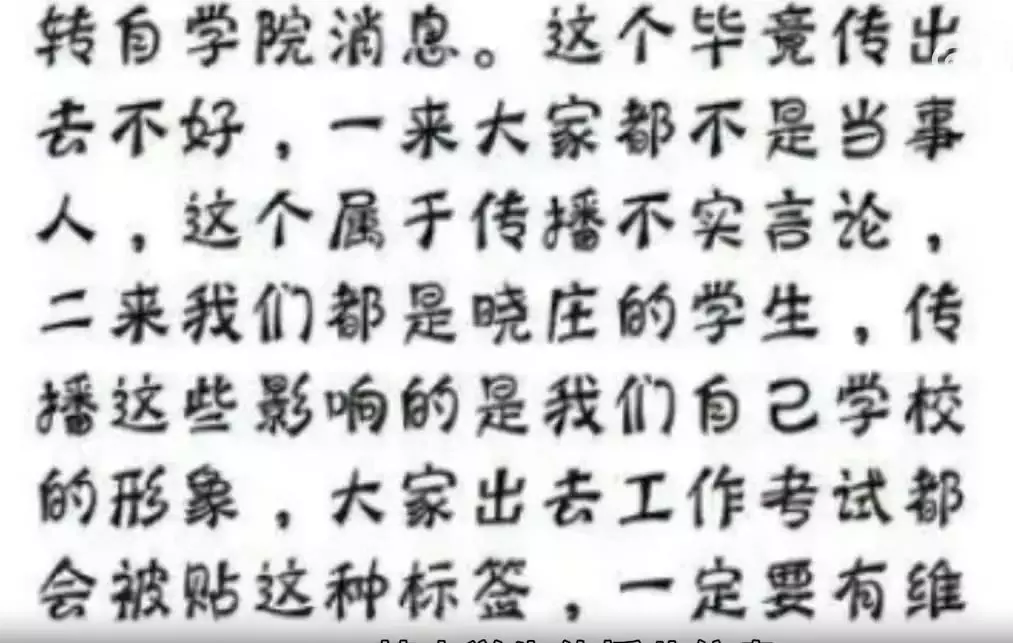 转自学院消息。这个毕竟传出
去不好，一来大家都不是当事
人，这个属于传播不实言论，
二来我们都是晓庄的学生，传
播这些影响的是我们自己学校
的形象，大家出去工作考试都
会被贴这种标签，一定要有维